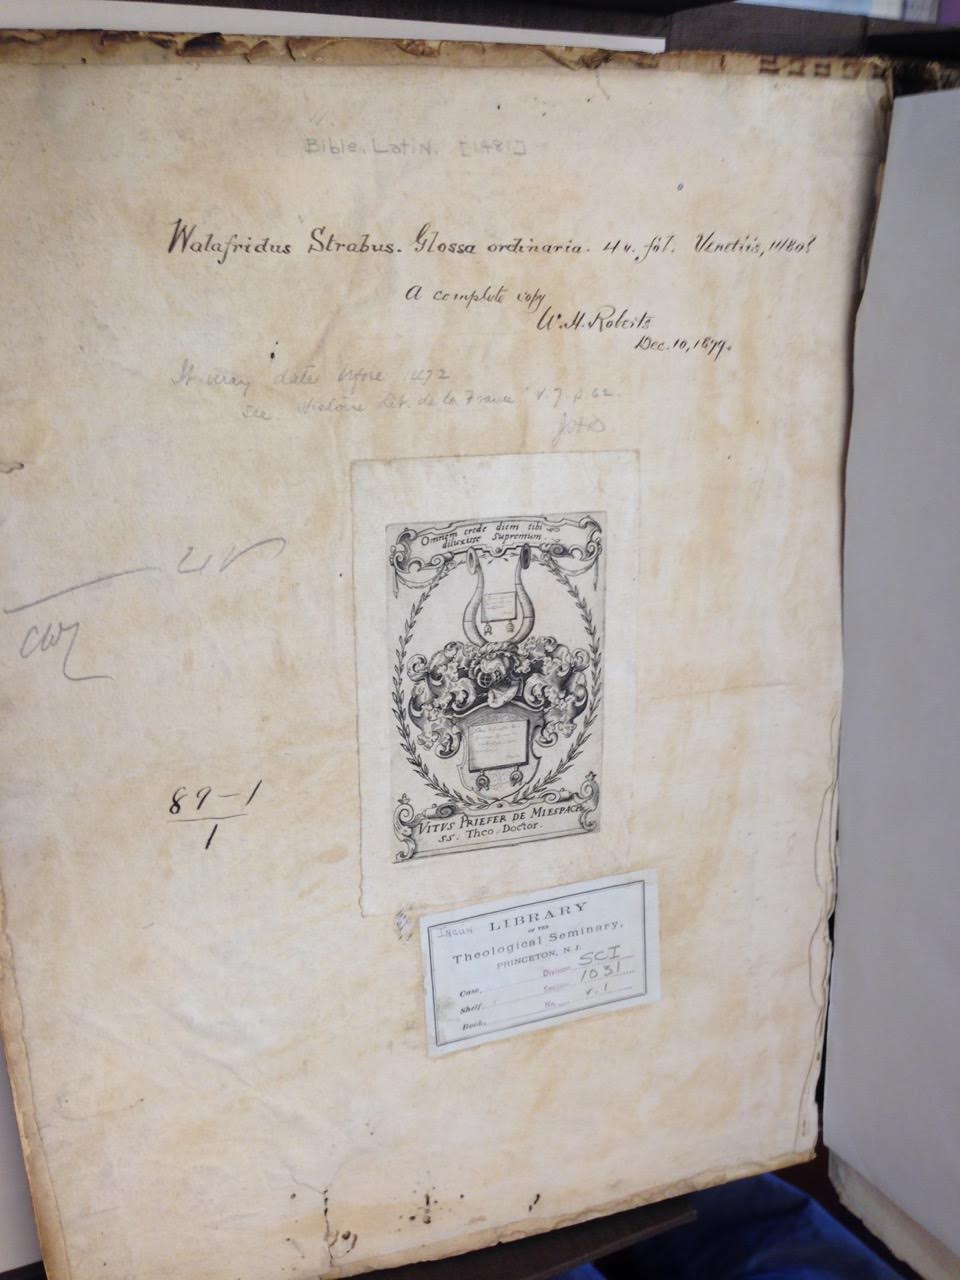 Bible. Latin. [1481]
Walafridus Strabus. Glossa ordinaria. 4 v. fol. Venetiis, 1480?
A complete copy
W. H. Roberts
Dec. 10, 1879.
It may date before 1472
See Histoire Lit. de la France v. 5. p. 62.
4 v
89-1
1
Omnem crede diem tibi
diluxisse Supremum.
VITVS PRIEFER DE MIESPACH
SS. Theo. Doctor.
INCUN
LIBRARY
OF THE
Theological Seminary,
PRINCETON, N. J.
Case, Division SCI
Shelf, Section 1031
Book, No. v. 1